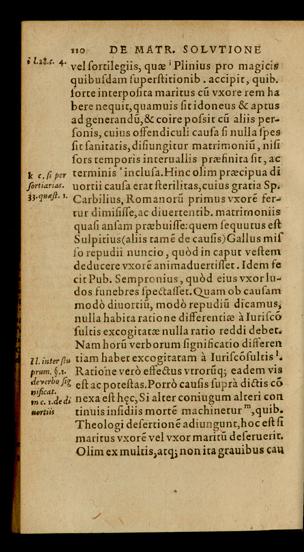 110 DE MATR. SOLVTIONE
i l.28.c. 4.
vel sortilegiis, quæ i Plinius pro magicis
quibusdam superstitionib. accipit, quib.
forte interposita maritus cũ vxore rem ha
bere nequit, quamuis sit idoneus & aptus
ad generandũ, & coire possit cũ aliis per-
sonis, cuius offendiculi causa si nulla spes
sit sanitatis, disiungitur matrimoniũ, nisi
sors temporis interuallis præfinita sit, ac
k c. si per
sortiarias.
33. quæst. 1.
terminis k inclusa. Hinc olim præcipua di
uortii causa erat sterilitas, cuius gratia Sp.
Carbilius, Romanorũ primus vxorẽ fer-
tur dimisisse, ac diuertentib. matrimoniis
quasi ansam præbuisse: quem sequutus est
Sulpitius (aliis tamẽ de causis) Gallus mis
so repudii nuncio, quòd in caput vestem
deducere vxorẽ animaduertisset. Idem fe
cit Pub. Sempronius, quòd eius vxor lu-
dos funebres spectasset. Quam ob causam
modò diuortiũ, modò repudiũ dicamus,
nulla habita ratione differentiæ à Iuriscõ
sultis excogitatæ nulla ratio reddi debet.
Nam horũ verborum significatio differen
l l. inter stu
prum. §. 1.
de verbo. sig
nificat.
m c. 1. de di
uortiis
tiam habet excogitatam à Iuriscõsultis l.
Ratione verò effectus vtrorũq; eadem vis
est ac potestas. Porrò causis suprà dictis cõ
nexa est hęc, Si alter coniugum alteri con
tinuis insidiis mortẽ machinetur m, quib.
Theologi desertionẽ adiungunt, hoc est si
maritus vxorẽ vel vxor maritũ deseruerit.
Olim ex multis, atq; non ita grauibus cau